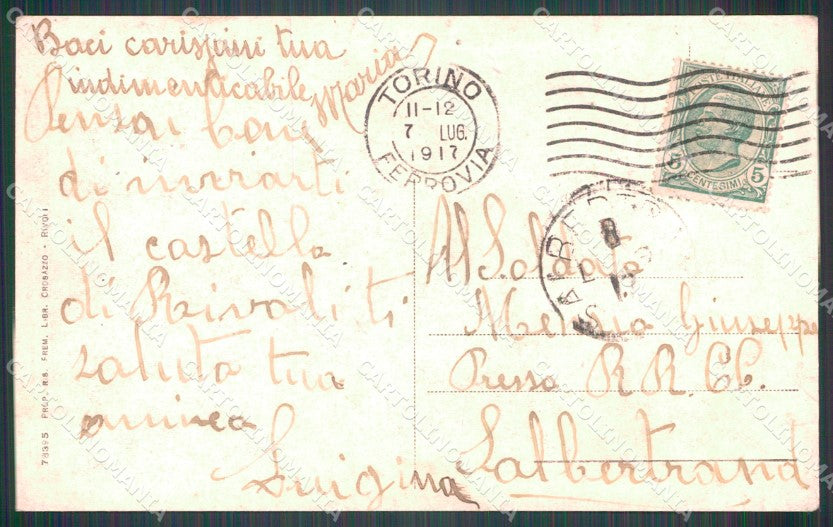 Baci carissimi tua
indimenticabile Maria
Pensai bene
di inviarti
il castello
di Rivoli ti
saluta tua
amica
Luigina
TORINO
11-12
7 LUG.
1917
FERROVIA
POSTE ITALIANE
5 5
CENTESIMI
SALBERTRAND
8
Al Soldato
Giuseppe
Presso R. R. CC.
Salbertrand
78395 PROP. R.S. PREM. LIBR. CROSAZZO - RIVOLI
CARTOLINOMANIA